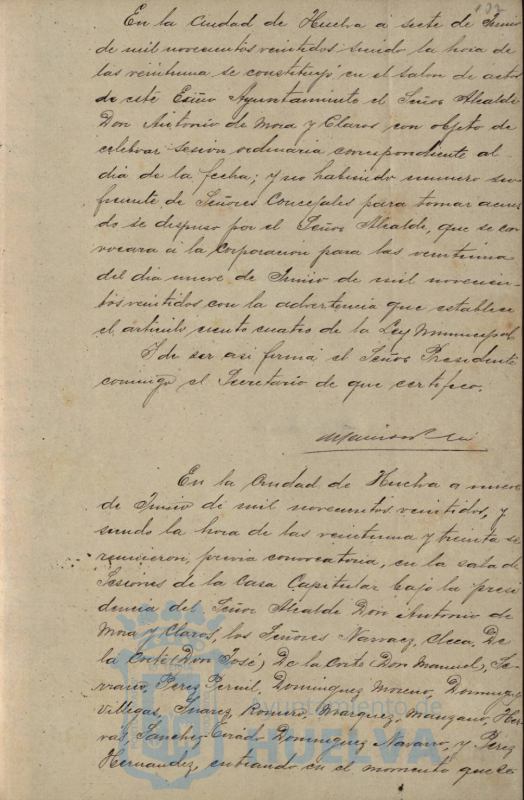 En la Ciudad de Huelva a siete de Junio
de mil novecientos veintidos siendo la hora de
las veintiuna se constituyó en el salon de actos
de este Excmo Ayuntamiento el Señor Alcalde
Don Antonio de Mora y Claros con objeto de
celebrar sesion ordinaria correspondiente al
dia de la fecha; y no habiendo numero su-
ficiente de Señores Concejales para tomar acuer
do se dispuso por el Señor Alcalde, que se con
vocara á la Corporacion para las veintiuna
del dia nueve de Junio de mil novecien-
tos veintidos con la advertencia que establece
el articulo ciento cuatro de la Ley Municipal
Y de ser asi firma el Señor Presidente
conmigo el Secretario de que certifico.
En la Ciudad de Huelva a nueve
de Junio de mil novecientos veintidos, y
siendo la hora de las veintiuna y treinta se
reunieron, previa convocatoria, en la sala de
Sesiones de la Casa Capitular bajo la presi
dencia del Señor Alcalde Don Antonio de
Mora y Claros, los Señores Narvaez, Checa, De
la Corte (Don José) De la Corte (Don Manuel), Se-
rrano, Perez Pernil, Dominguez Moreno, Dominguez
Villegas, Suarez, Romero, Marquez, Manzano, Her
vas, Sanchez Tirado Dominguez Navarro, y Pérez
Hernandez, entrando en el momento que se
Ayuntamiento de
HUELVA